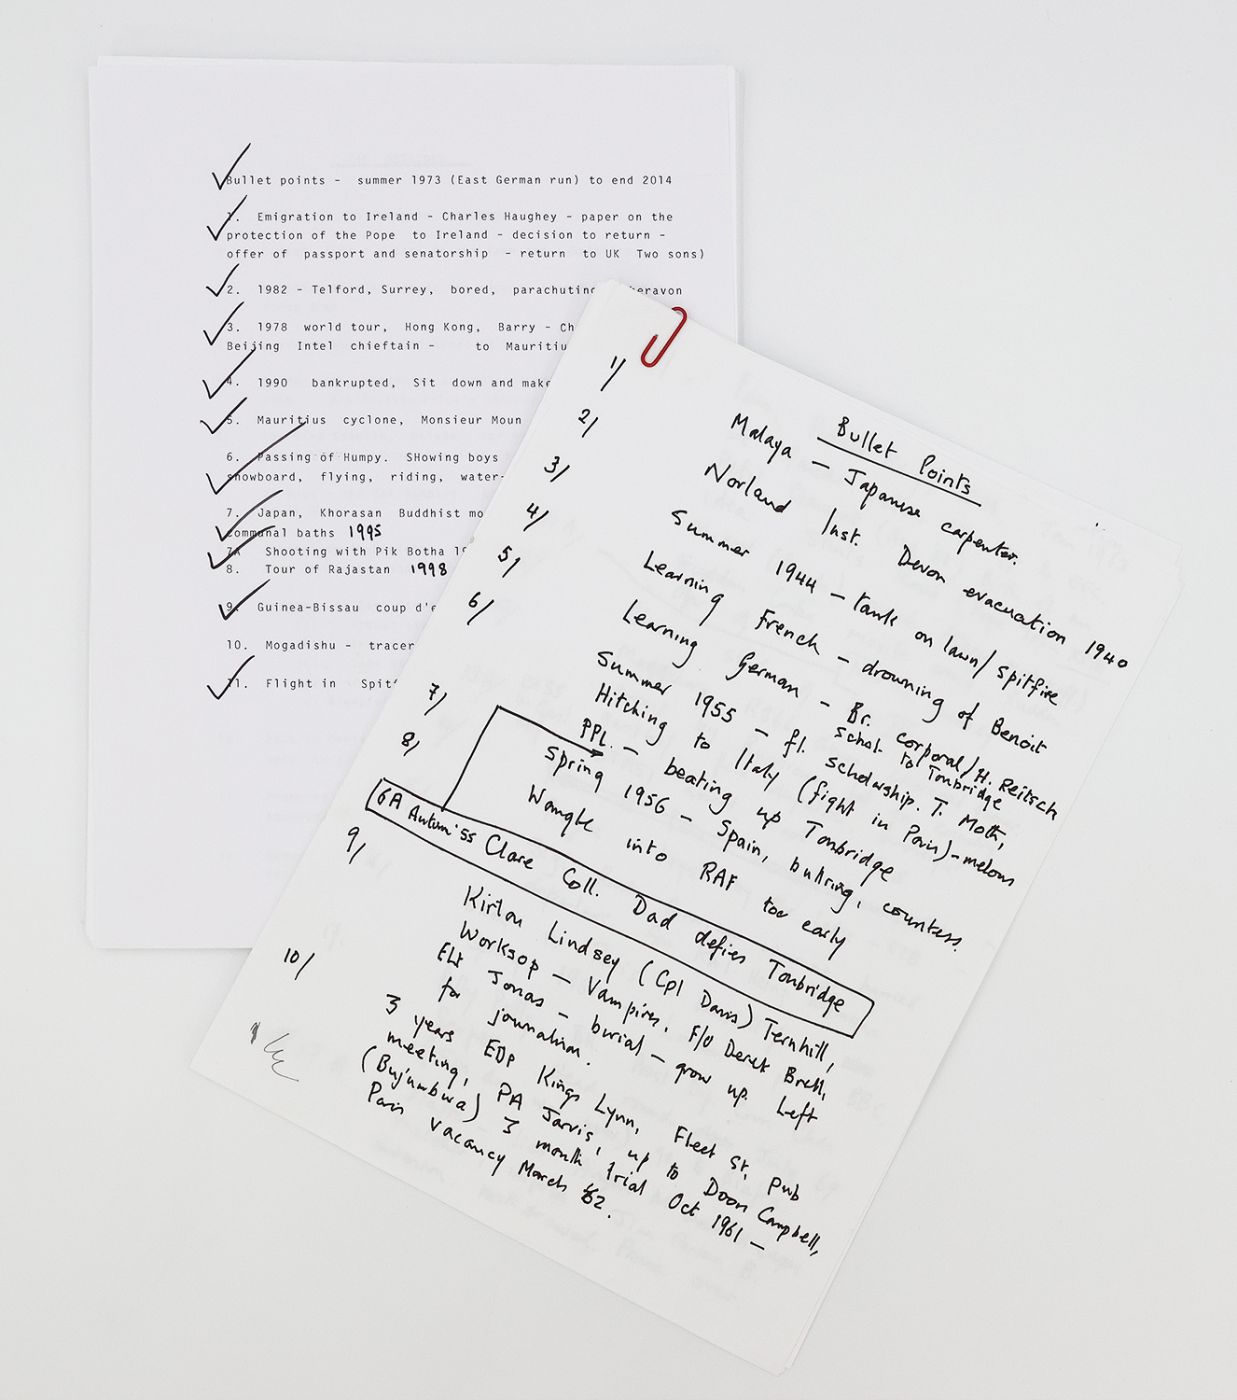 Bullet points - summer 1973 (East German run) to end 2014
1. Emigration to Ireland - Charles Haughey - paper on the
protection of the Pope to Ireland - decision to return -
offer of passport and senatorship - return to UK Two sons)
2. 1982 - Telford, Surrey, bored, parachuting
3. 1978 world tour, Hong Kong, Barry - Ch
Beijing Intel chieftain - to Mauritiu
4. 1990 bankrupted, Sit down and make
5. Mauritius cyclone, Monsieur Moun
6. Passing of Humpy. SHowing boys
snowboard, flying, riding, water-
7. Japan, Khorasan Buddhist mo
communal baths 1995
7A Shooting with Pik Botha 19
8. Tour of Rajastan 1998
9. Guinea-Bissau coup d'e
10. Mogadishu - tracer
11. Flight in Spitf
Bullet Points
1/ Malaya - Japanese carpenter.
2/ Norland Inst. Devon evacuation 1940
3/ Summer 1944 - tank on lawn/spitfire
4/ Learning French - drowning of Benoit
5/ Learning German - Br. corporal/H. Reitsch
Schol. to Tonbridge
6/ Summer 1955 - fl. scholarship. T. Moth,
Hitching to Italy (fight in Paris) - melons
PPL. - beating up Tonbridge
7/ Spring 1956 - Spain, bullring, countess.
8/ Wangle into RAF too early
6A Autum '55 Clare Coll. Dad defies Tonbridge
9/ Kirton Lindsey (Cpl Davis) Ternhill,
Worksop - Vampires. F/O Derek Brett,
Jonas - burial - grow up. Left
for journalism.
10/ 3 years EDP Kings Lynn, Fleet St, pub
meeting, PA Jarvis, up to Doon Campbell,
(Bujumbura) 3 month trial Oct 1961 -
Paris vacancy March 62.